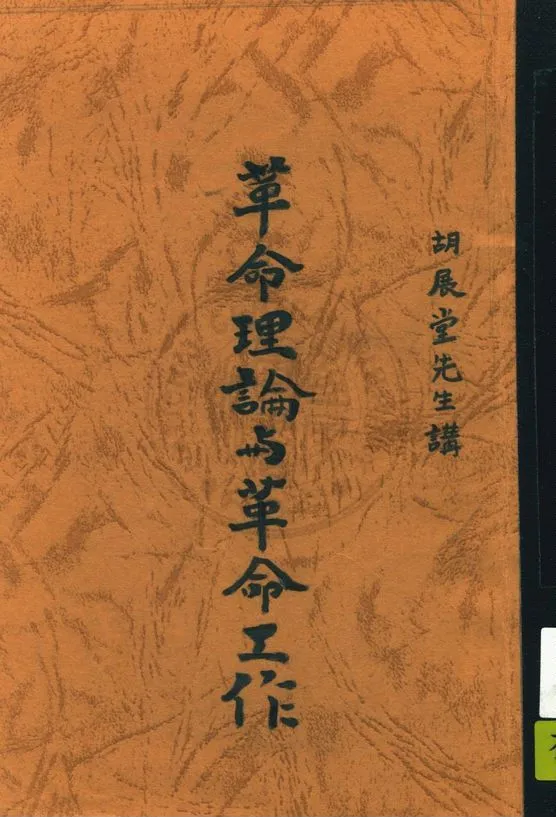 胡展堂先生講
革命理論与革命工作